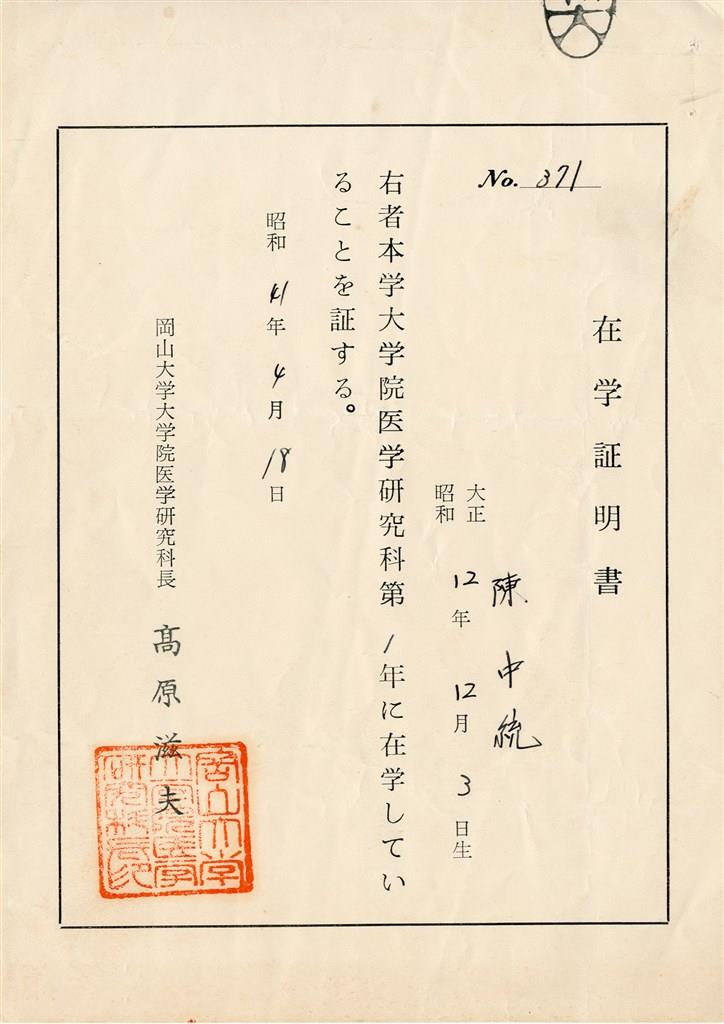 No. 371
在学証明書
陳中統
大正
昭和
12年12月3日生
右者本学大学院医学研究科第1年に在学してい
ることを証する。
昭和41年4月18日
岡山大学大学院医学研究科長 髙原滋夫
岡山大学
大学院医学
研究科長印